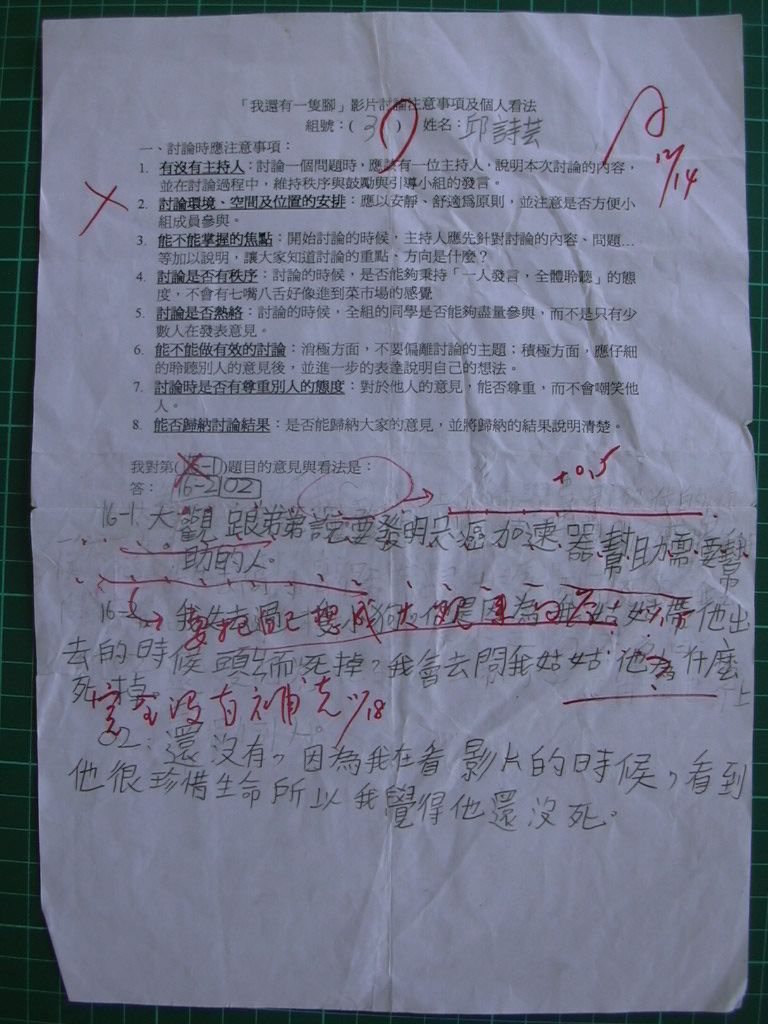 「我還有一隻腳」影片討論注意事項及個人看法
組號：( 3 ) 姓名：邱詩芸
A
12/14
一、討論時應注意事項：
1. 有沒有主持人：討論一個問題時，應該有一位主持人，說明本次討論的內容，
並在討論過程中，維持秩序與鼓勵與引導小組的發言。
2. 討論環境、空間及位置的安排：應以安靜、舒適為原則，並注意是否方便小
組成員參與。
3. 能不能掌握的焦點：開始討論的時候，主持人應先針對討論的內容、問題…
等加以說明，讓大家知道討論的重點、方向是什麼？
4. 討論是否有秩序：討論的時候，是否能夠秉持「一人發言，全體聆聽」的態
度，不會有七嘴八舌好像進到菜市場的感覺
5. 討論是否熱絡：討論的時候，全組的同學是否能夠盡量參與，而不是只有少
數人在發表意見。
6. 能不能做有效的討論：消極方面，不要偏離討論的主題；積極方面，應仔細
的聆聽別人的意見後，並進一步的表達說明自己的想法。
7. 討論時是否有尊重別人的態度：對於他人的意見，能否尊重，而不會嘲笑他
人。
8. 能否歸納討論結果：是否能歸納大家的意見，並將歸納的結果說明清楚。
我對第(16-1)題目的意見與看法是：
+0.5
答： 16-2 02
16-1. 大觀跟弟弟說要發明 加速器幫助需要幫
助的人。
16-2. 我 過一隻小狗 但是因為我姑姑帶他出
去的時候頭 而死掉，我會去問我姑姑他為什麼
死掉。
完全沒有補充 11/18
02：還沒有，因為我在看影片的時候，看到
他很珍惜生命所以我覺得他還沒死。